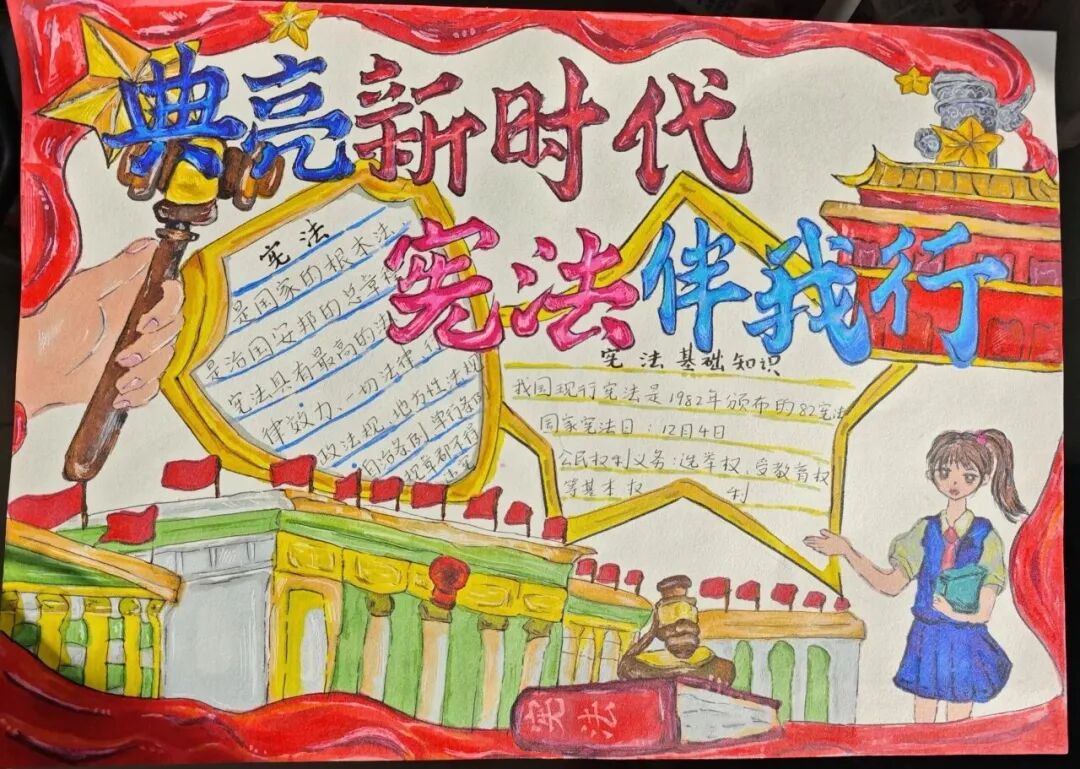 典亮新时代
宪法伴我行
宪法
是国家的根本法
是治国安邦的总章程
宪法具有最高的法
律效力、一切法律、行
政法规、地方性法规
自治条例 单行条例
规章都不得
宪法基础知识
我国现行宪法是1982年颁布的82宪法
国家宪法日:12月4日
公民权利义务:选举权、受教育权
等基本权利
宪法